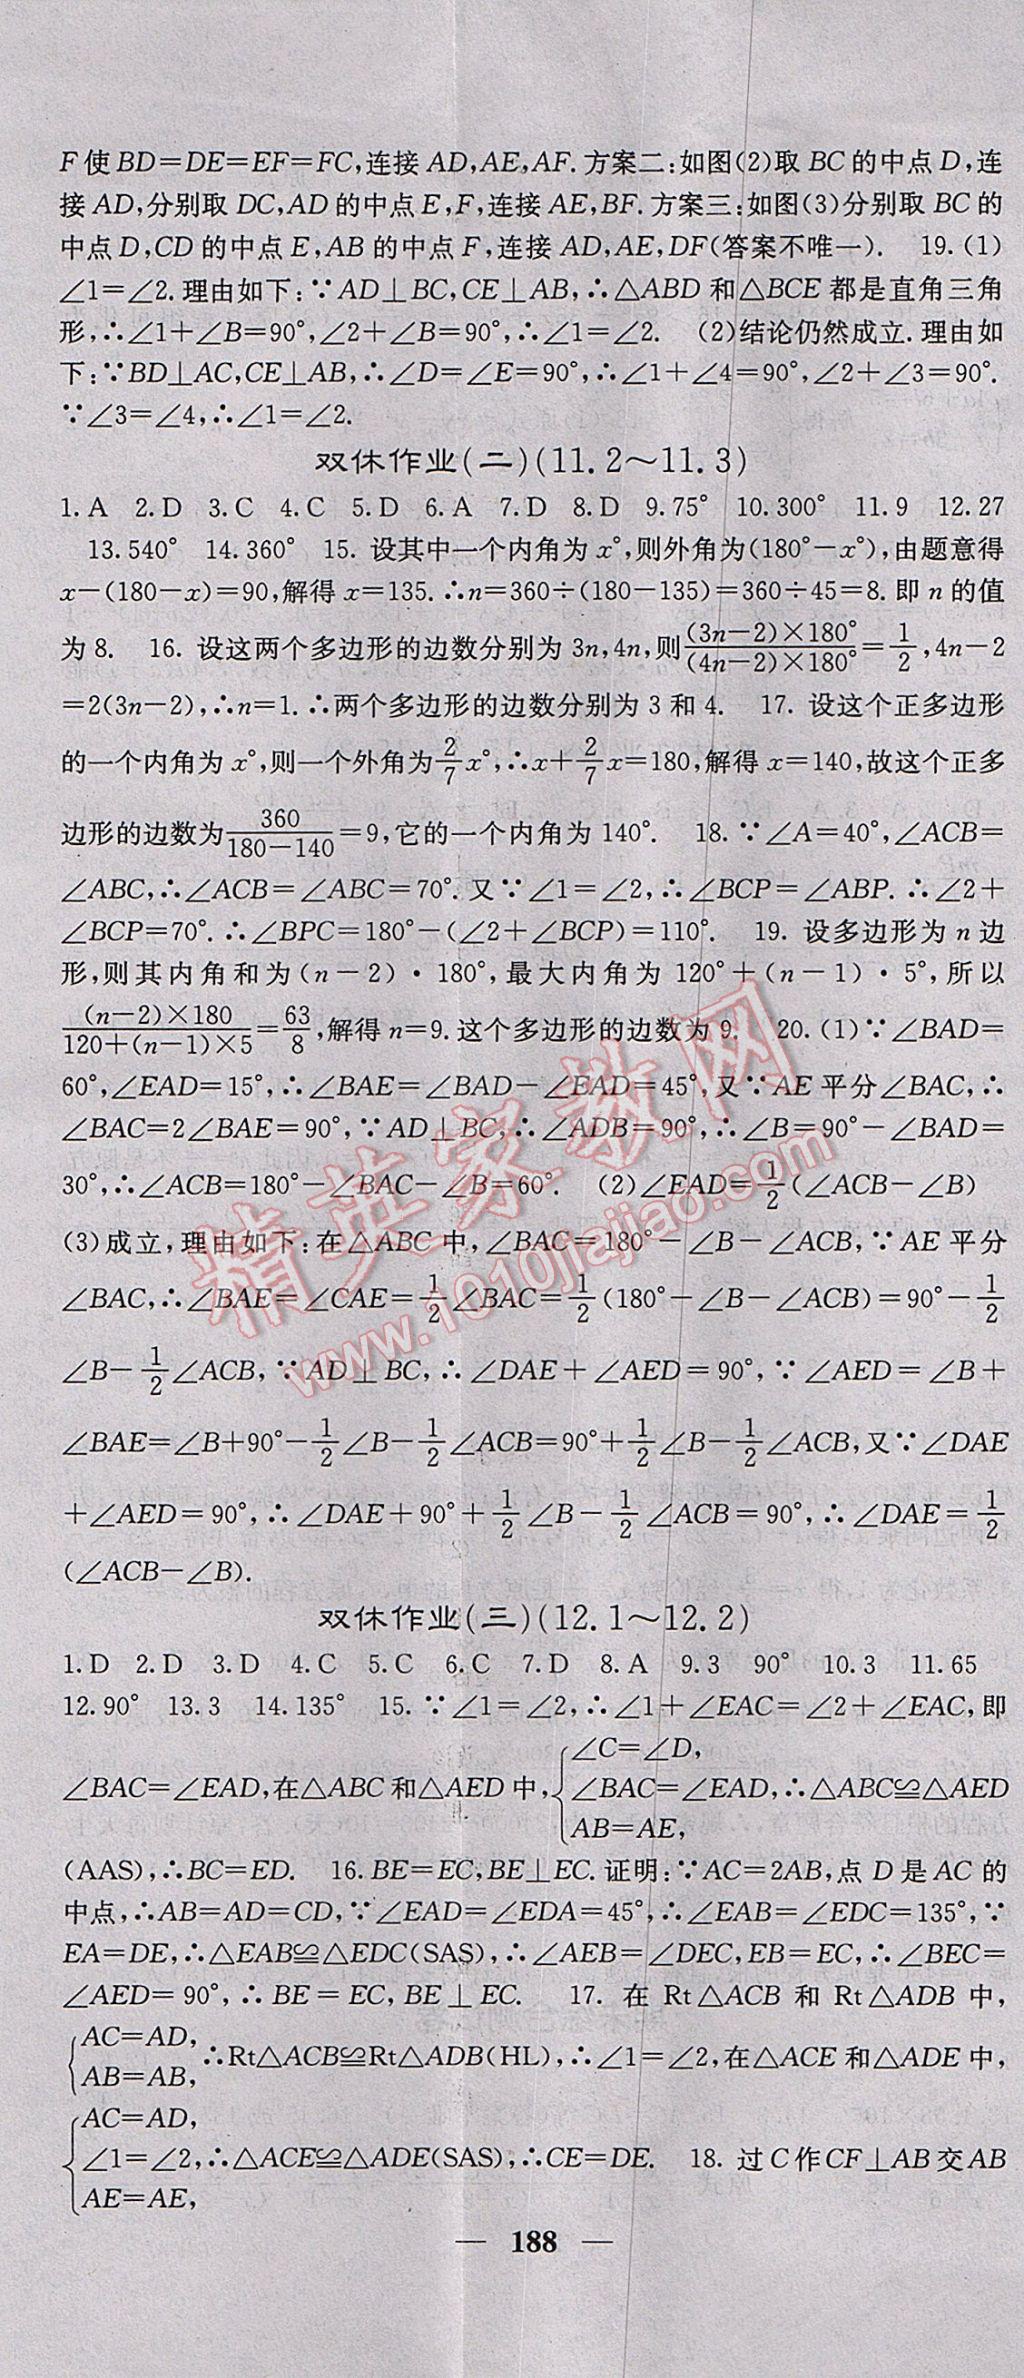 F使BD=DE=EF=FC,连接AD,AE,AF.方案二:如图(2)取BC的中点D,连
接AD,分别取DC,AD的中点E,F,连接AE,BF.方案三:如图(3)分别取BC的
中点D,CD的中点E,AB的中点F,连接AD,AE,DF(答案不唯一). 19.(1)
∠1=∠2.理由如下:∵AD⊥BC,CE⊥AB,∴△ABD和△BCE都是直角三角
形,∴∠1+∠B=90°,∠2+∠B=90°,∴∠1=∠2. (2)结论仍然成立.理由如
下:∵BD⊥AC,CE⊥AB,∴∠D=∠E=90°,∴∠1+∠4=90°,∠2+∠3=90°.
∵∠3=∠4,∴∠1=∠2.
双休作业(二)(11.2~11.3)
1.A 2.D 3.C 4.C 5.D 6.A 7.D 8.D 9.75° 10.300° 11.9 12.27
13.540° 14.360° 15. 设其中一个内角为x°,则外角为(180°-x°),由题意得
x-(180-x)=90,解得x=135.∴n=360÷(180-135)=360÷45=8.即n的值
为8. 16. 设这两个多边形的边数分别为3n,4n,则\frac{(3n-2)×180°}{(4n-2)×180°}=\frac{1}{2},4n-2
=2(3n-2),∴n=1.∴两个多边形的边数分别为3和4. 17. 设这个正多边形
的一个内角为x°,则一个外角为\frac{2}{7}x°,∴x+\frac{2}{7}x=180,解得x=140,故这个正多
边形的边数为\frac{360}{180-140}=9,它的一个内角为140°. 18.∵∠A=40°,∠ACB=
∠ABC,∴∠ACB=∠ABC=70°.又∵∠1=∠2,∴∠BCP=∠ABP.∴∠2+
∠BCP=70°.∴∠BPC=180°-(∠2+∠BCP)=110°. 19. 设多边形为n边
形,则其内角和为(n-2)·180°,最大内角为120°+(n-1)·5°,所以
\frac{(n-2)×180}{120+(n-1)×5}=\frac{63}{8},解得n=9.这个多边形的边数为9. 20.(1)∵∠BAD=
60°,∠EAD=15°,∴∠BAE=∠BAD-∠EAD=45°,又∵AE平分∠BAC,∴
∠BAC=2∠BAE=90°,∵AD⊥BC,∴∠ADB=90°,∴∠B=90°-∠BAD=
30°,∴∠ACB=180°-∠BAC-∠B=60°. (2)∠EAD=\frac{1}{2}(∠ACB-∠B)
(3)成立,理由如下:在△ABC中,∠BAC=180°-∠B-∠ACB,∵AE平分
∠BAC,∴∠BAE=∠CAE=\frac{1}{2}∠BAC=\frac{1}{2}(180°-∠B-∠ACB)=90°-\frac{1}{2}
∠B-\frac{1}{2}∠ACB,∵AD⊥BC,∴∠DAE+∠AED=90°,∵∠AED=∠B+
∠BAE=∠B+90°-\frac{1}{2}∠B-\frac{1}{2}∠ACB=90°+\frac{1}{2}∠B-\frac{1}{2}∠ACB,又∵∠DAE
+∠AED=90°,∴∠DAE+90°+\frac{1}{2}∠B-\frac{1}{2}∠ACB=90°,∴∠DAE=\frac{1}{2}
(∠ACB-∠B).
双休作业(三)(12.1~12.2)
1.D 2.D 3.D 4.C 5.C 6.C 7.D 8.A 9.3 90° 10.3 11.65
12.90° 13.3 14.135° 15.∵∠1=∠2,∴∠1+∠EAC=∠2+∠EAC,即
∠BAC=∠EAD,在△ABC和△AED中,{∠C=∠D,
∠BAC=∠EAD,∴△ABC≌△AED
AB=AE,
(AAS),∴BC=ED. 16.BE=EC,BE⊥EC.证明:∵AC=2AB,点D是AC的
中点,∴AB=AD=CD,∵∠EAD=∠EDA=45°,∴∠EAB=∠EDC=135°,∵
EA=DE,∴△EAB≌△EDC(SAS),∴∠AEB=∠DEC,EB=EC,∴∠BEC=
∠AED=90°,∴BE=EC,BE⊥EC. 17. 在Rt△ACB和Rt△ADB中,
{AC=AD,
AB=AB,∴Rt△ACB≌Rt△ADB(HL),∴∠1=∠2,在△ACE和△ADE中,
{AC=AD,
∠1=∠2,∴△ACE≌△ADE(SAS),∴CE=DE. 18. 过C作CF⊥AB交AB
AE=AE,
— 188 —
精英家教网
www.1010jiajiao.com